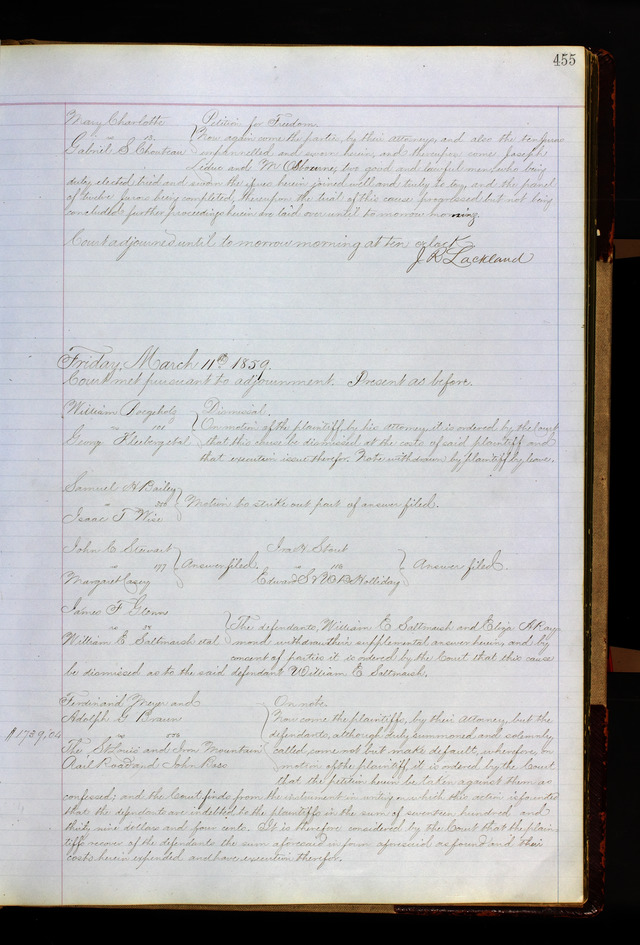 455
Mary Charlotte Petition for Freedom
vs 13 Now again come the parties, by their attorneys, and also the ten jurors
Gabriel S Chouteau impannelled and sworn herein, and thereupon come Joseph
Leduc and M good and lawful men, who being
duly elected tried and sworn the issue herein joined well and truly to try, and the panel
of twelve jurors being completed, thereupon the trial of this cause progressed but not being
concluded further proceedings herein are laid over until to morrow morning.
Court adjourned until to morrow morning at ten oclock
J R Lackland
Friday, March 11th 1859.
Court met pursuant to adjournment. Present as before.
William Dismissal.
vs On motion of the plaintiff by his attorney it is ordered by the Court
Georg et al that this cause be dismissed at the costs of said plaintiff and
that execution issue therefor. Note withdrawn by plaintiff by leave.
Samuel A Bailey
vs Motion to strike out part of answer filed.
Isaac T Wise
John C Stewart Ira A Stout
vs 177 Answer filed. vs Answer filed.
Margaret Casey Edward Holliday
James F Glenn
vs The defendants, William E Saltmarsh and Eliza A Ray
William E Saltmarsh et al mond withdraw their supplemental answer herein, and by
consent of parties it is ordered by the Court that this cause
be dismissed as to the said defendant William E Saltmarsh.
Ferdinand Meyer and On note.
Adolph G Braun Now come the plaintiffs, by their attorney, but the
vs defendants, although duly summoned and solemnly
$1739,04 The St Louis and Iron Mountain called, come not but make default, wherefore, on
Rail Road and John Ross motion of the plaintiff it is ordered by the Court
that the petition herein be taken against them as
confessed; and the Court finds from the instrument in writing on which this action is founded
that the defendants are indebted to the plaintiffs in the sum of seventeen hundred and
thirty nine dollars and four cents. It is therefore considered by the Court that the plain-
tiffs recover of the defendants the sum aforesaid in form aforesaid as found and their
costs herein expended and have execution therefor.